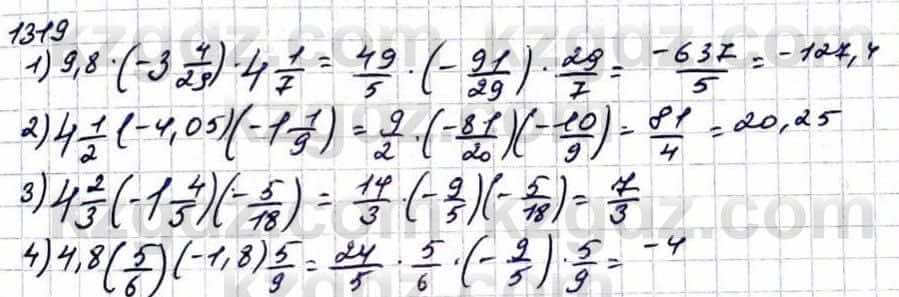 1319
1) 9,8 · (-3 4/29) · 4 1/7 = 49/5 · (- 91/29) · 29/7 = -637/5 = -127,4
2) 4 1/2 (-4,05)(-1 1/9) = 9/2 · (-81/20)(-10/9) = 81/4 = 20,25
3) 4 2/3 (-1 4/5)(- 5/18) = 14/3 · (- 9/5)(- 5/18) = 7/3
4) 4,8 (5/6) (-1,8) 5/9 = 24/5 · 5/6 · (- 9/5) · 5/9 = -4